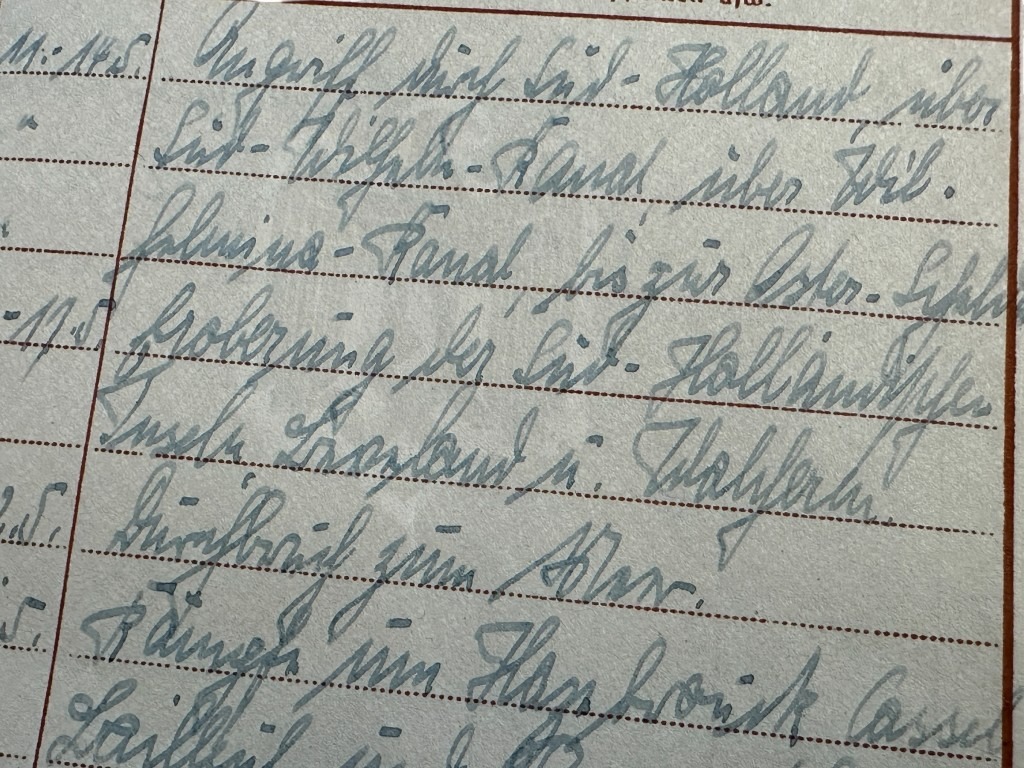 11.-14.5. Angriff durch Süd-Holland, über
" Süd-Wilhelm-Kanal, über Wil-
helmina-Kanal, bis zur Oster-Schelde
-17.5. Eroberung der Süd-Holländischen
Inseln Beveland u. Walchern.
.5. Durchbruch zum Meer.
5. Kämpfe um Hazebrouck Cassel
Bailleul und